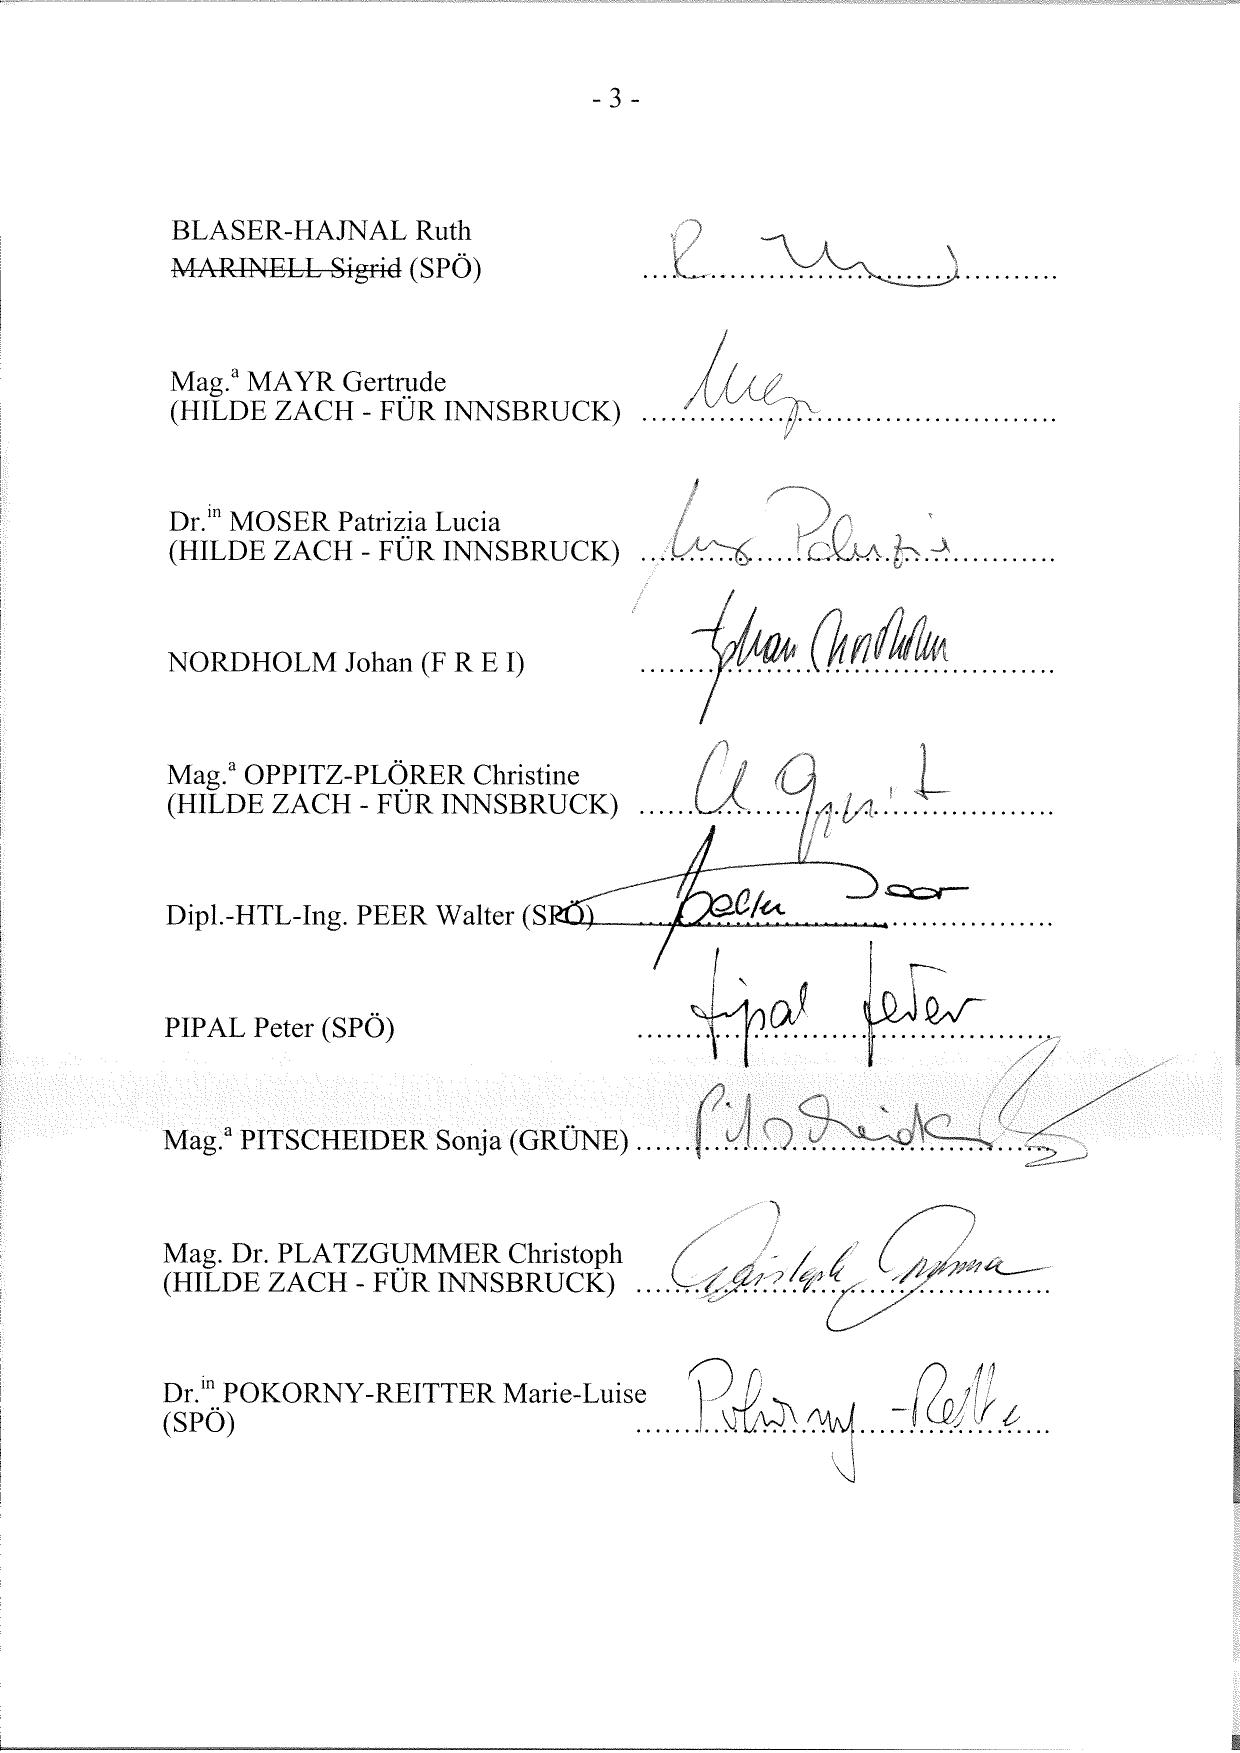 - 3 -
BLASER-HAJNAL Ruth
MARINELL Sigrid (SPÖ)
Mag.ª MAYR Gertrude
(HILDE ZACH - FÜR INNSBRUCK)
Dr.in MOSER Patrizia Lucia
(HILDE ZACH - FÜR INNSBRUCK)
Patrizia
NORDHOLM Johan (F R E I)
Johan Nordholm
Mag.ª OPPITZ-PLÖRER Christine
(HILDE ZACH - FÜR INNSBRUCK)
Dipl.-HTL-Ing. PEER Walter (SPÖ)
PIPAL Peter (SPÖ)
Pipal Peter
Mag.ª PITSCHEIDER Sonja (GRÜNE)
Mag. Dr. PLATZGUMMER Christoph
(HILDE ZACH - FÜR INNSBRUCK)
Christoph
Dr.in POKORNY-REITTER Marie-Luise
(SPÖ)
Pokorny-Reitter